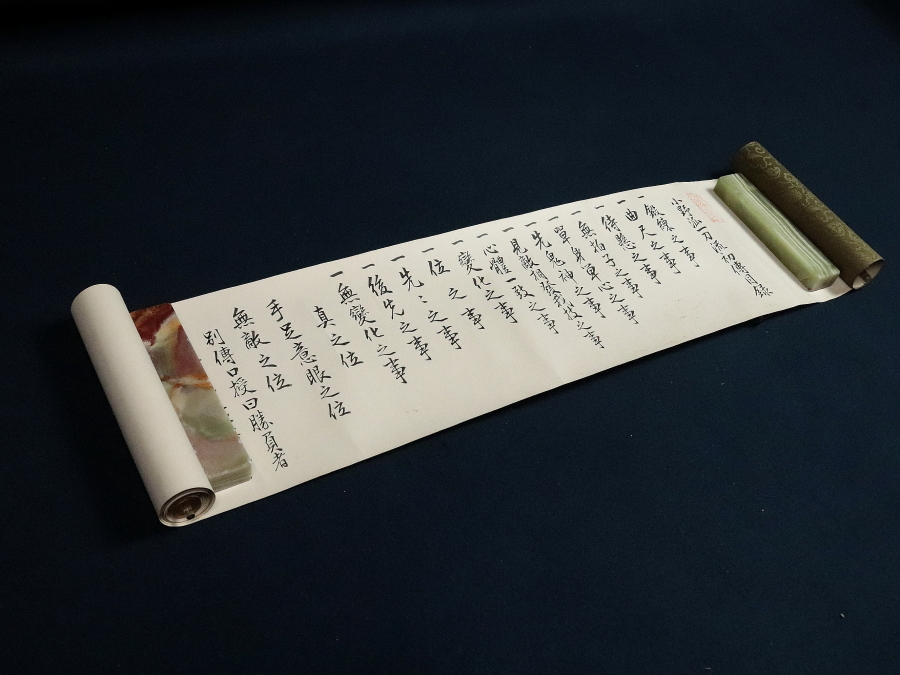 小野派一刀流初傳目録
一 鍛錬之事
一 曲尺之事
一 待懸之事
一 無拍子之事
一 單身單心之事
一 先鬼神之事
一 見敵相之事
一 心體一致之事
一 變化之事
一 位之事
一 先ゝ之事
一 後先之事
一 無變化之事
真之位
手足意眼之位
無敵之位
別傳口授曰勝負者